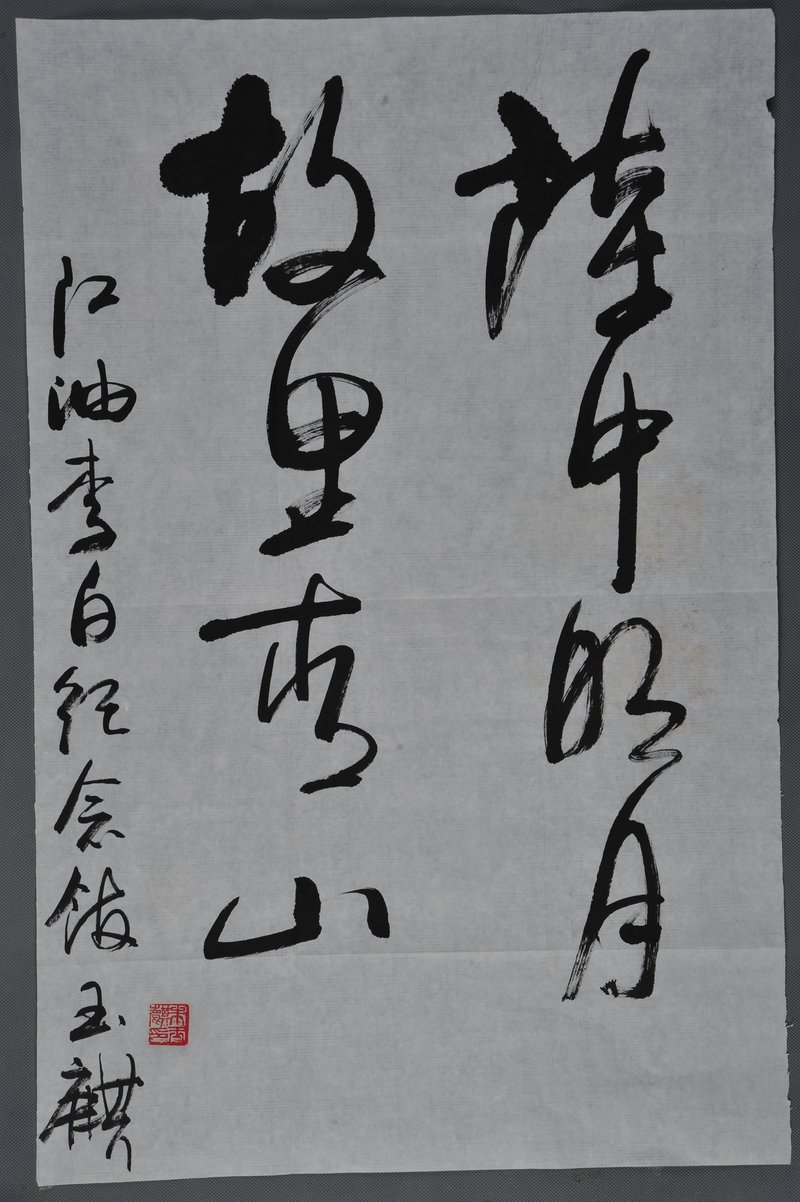 樽中明月
故里青山
江油李白纪念馆 玉麒